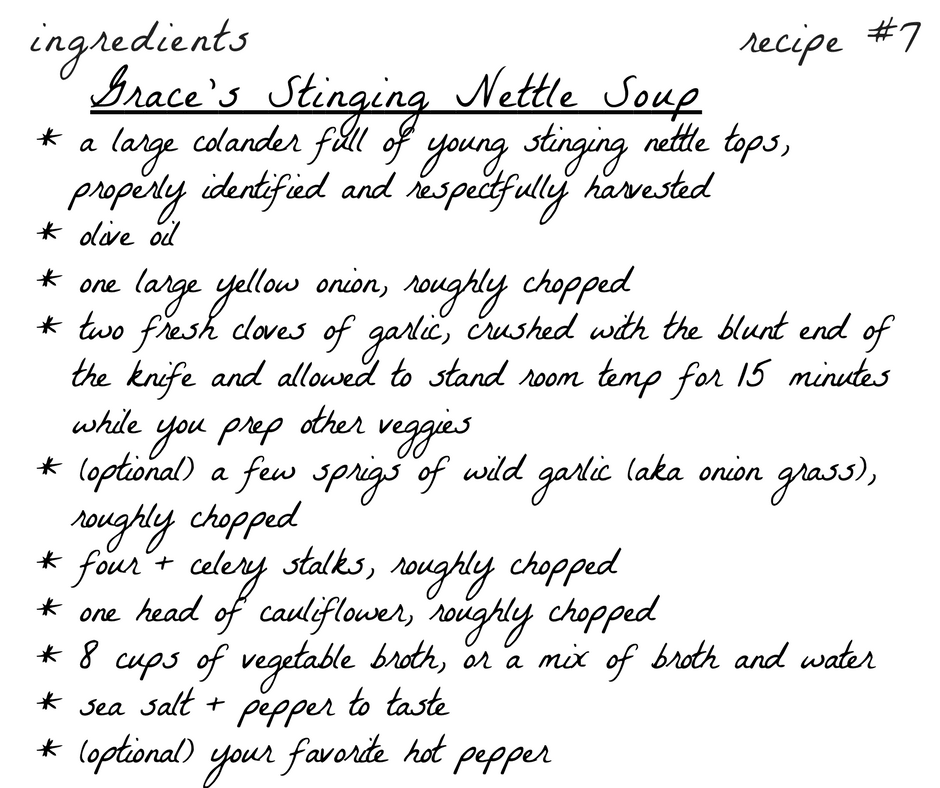 ingredients recipe #7
Grace's Stinging Nettle Soup
* a large colander full of young stinging nettle tops,
properly identified and respectfully harvested
* olive oil
* one large yellow onion, roughly chopped
* two fresh cloves of garlic, crushed with the blunt end of
the knife and allowed to stand room temp for 15 minutes
while you prep other veggies
* (optional) a few sprigs of wild garlic (aka onion grass),
roughly chopped
* four + celery stalks, roughly chopped
* one head of cauliflower, roughly chopped
* 8 cups of vegetable broth, or a mix of broth and water
* sea salt + pepper to taste
* (optional) your favorite hot pepper